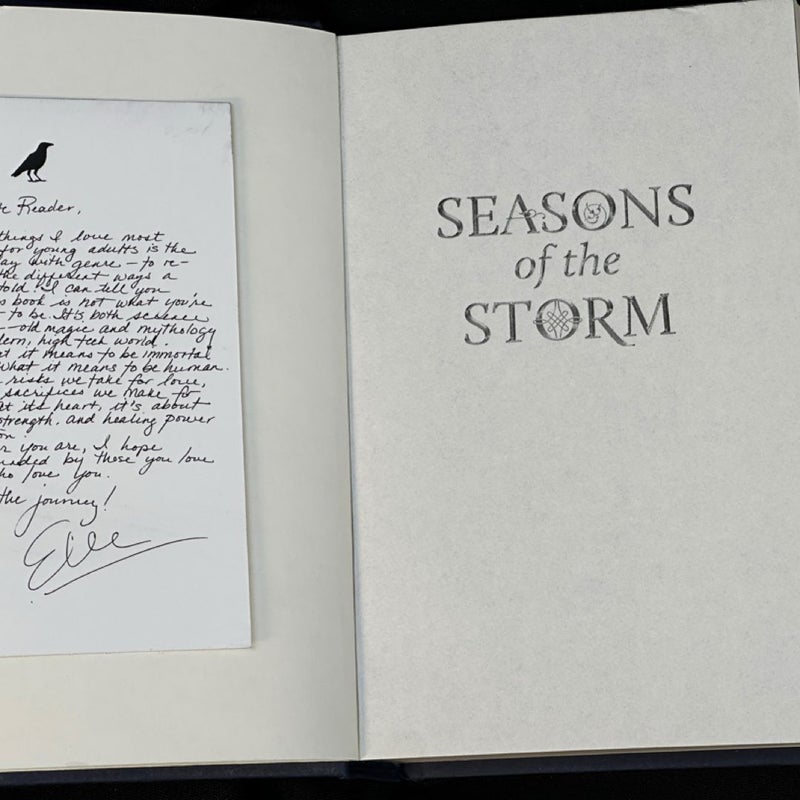 Reader,
things I love most
for young adults is the
with genre - to re-
the different ways a
told. I can tell you
book is not what you're
to be. It's both science
- old magic and mythology
high tech world.
it means to be immortal
what it means to be human.
risks we take for love,
sacrifices we make for
at its heart, it's about
strength, and healing power
you are, I hope
by those you love
love you.
the journey!
Elle
SEASONS
of the
STORM